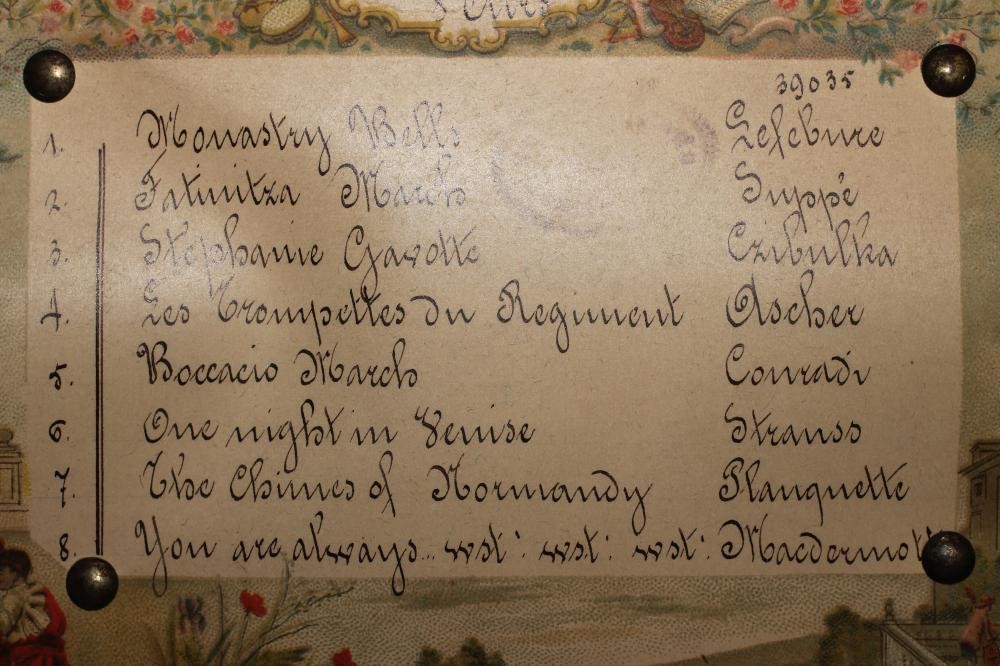 39035
1. Monastry Bells Lefebure
2. Fatinitza March Suppé
3. Stephanie Gavotte Czibulka
4. Les Trompettes du Regiment Ascher
5. Boccacio March Conradi
6. One night in Venise Strauss
7. The Chimes of Normandy Planquette
8. You are always... wst: wst: wst: Macdermott